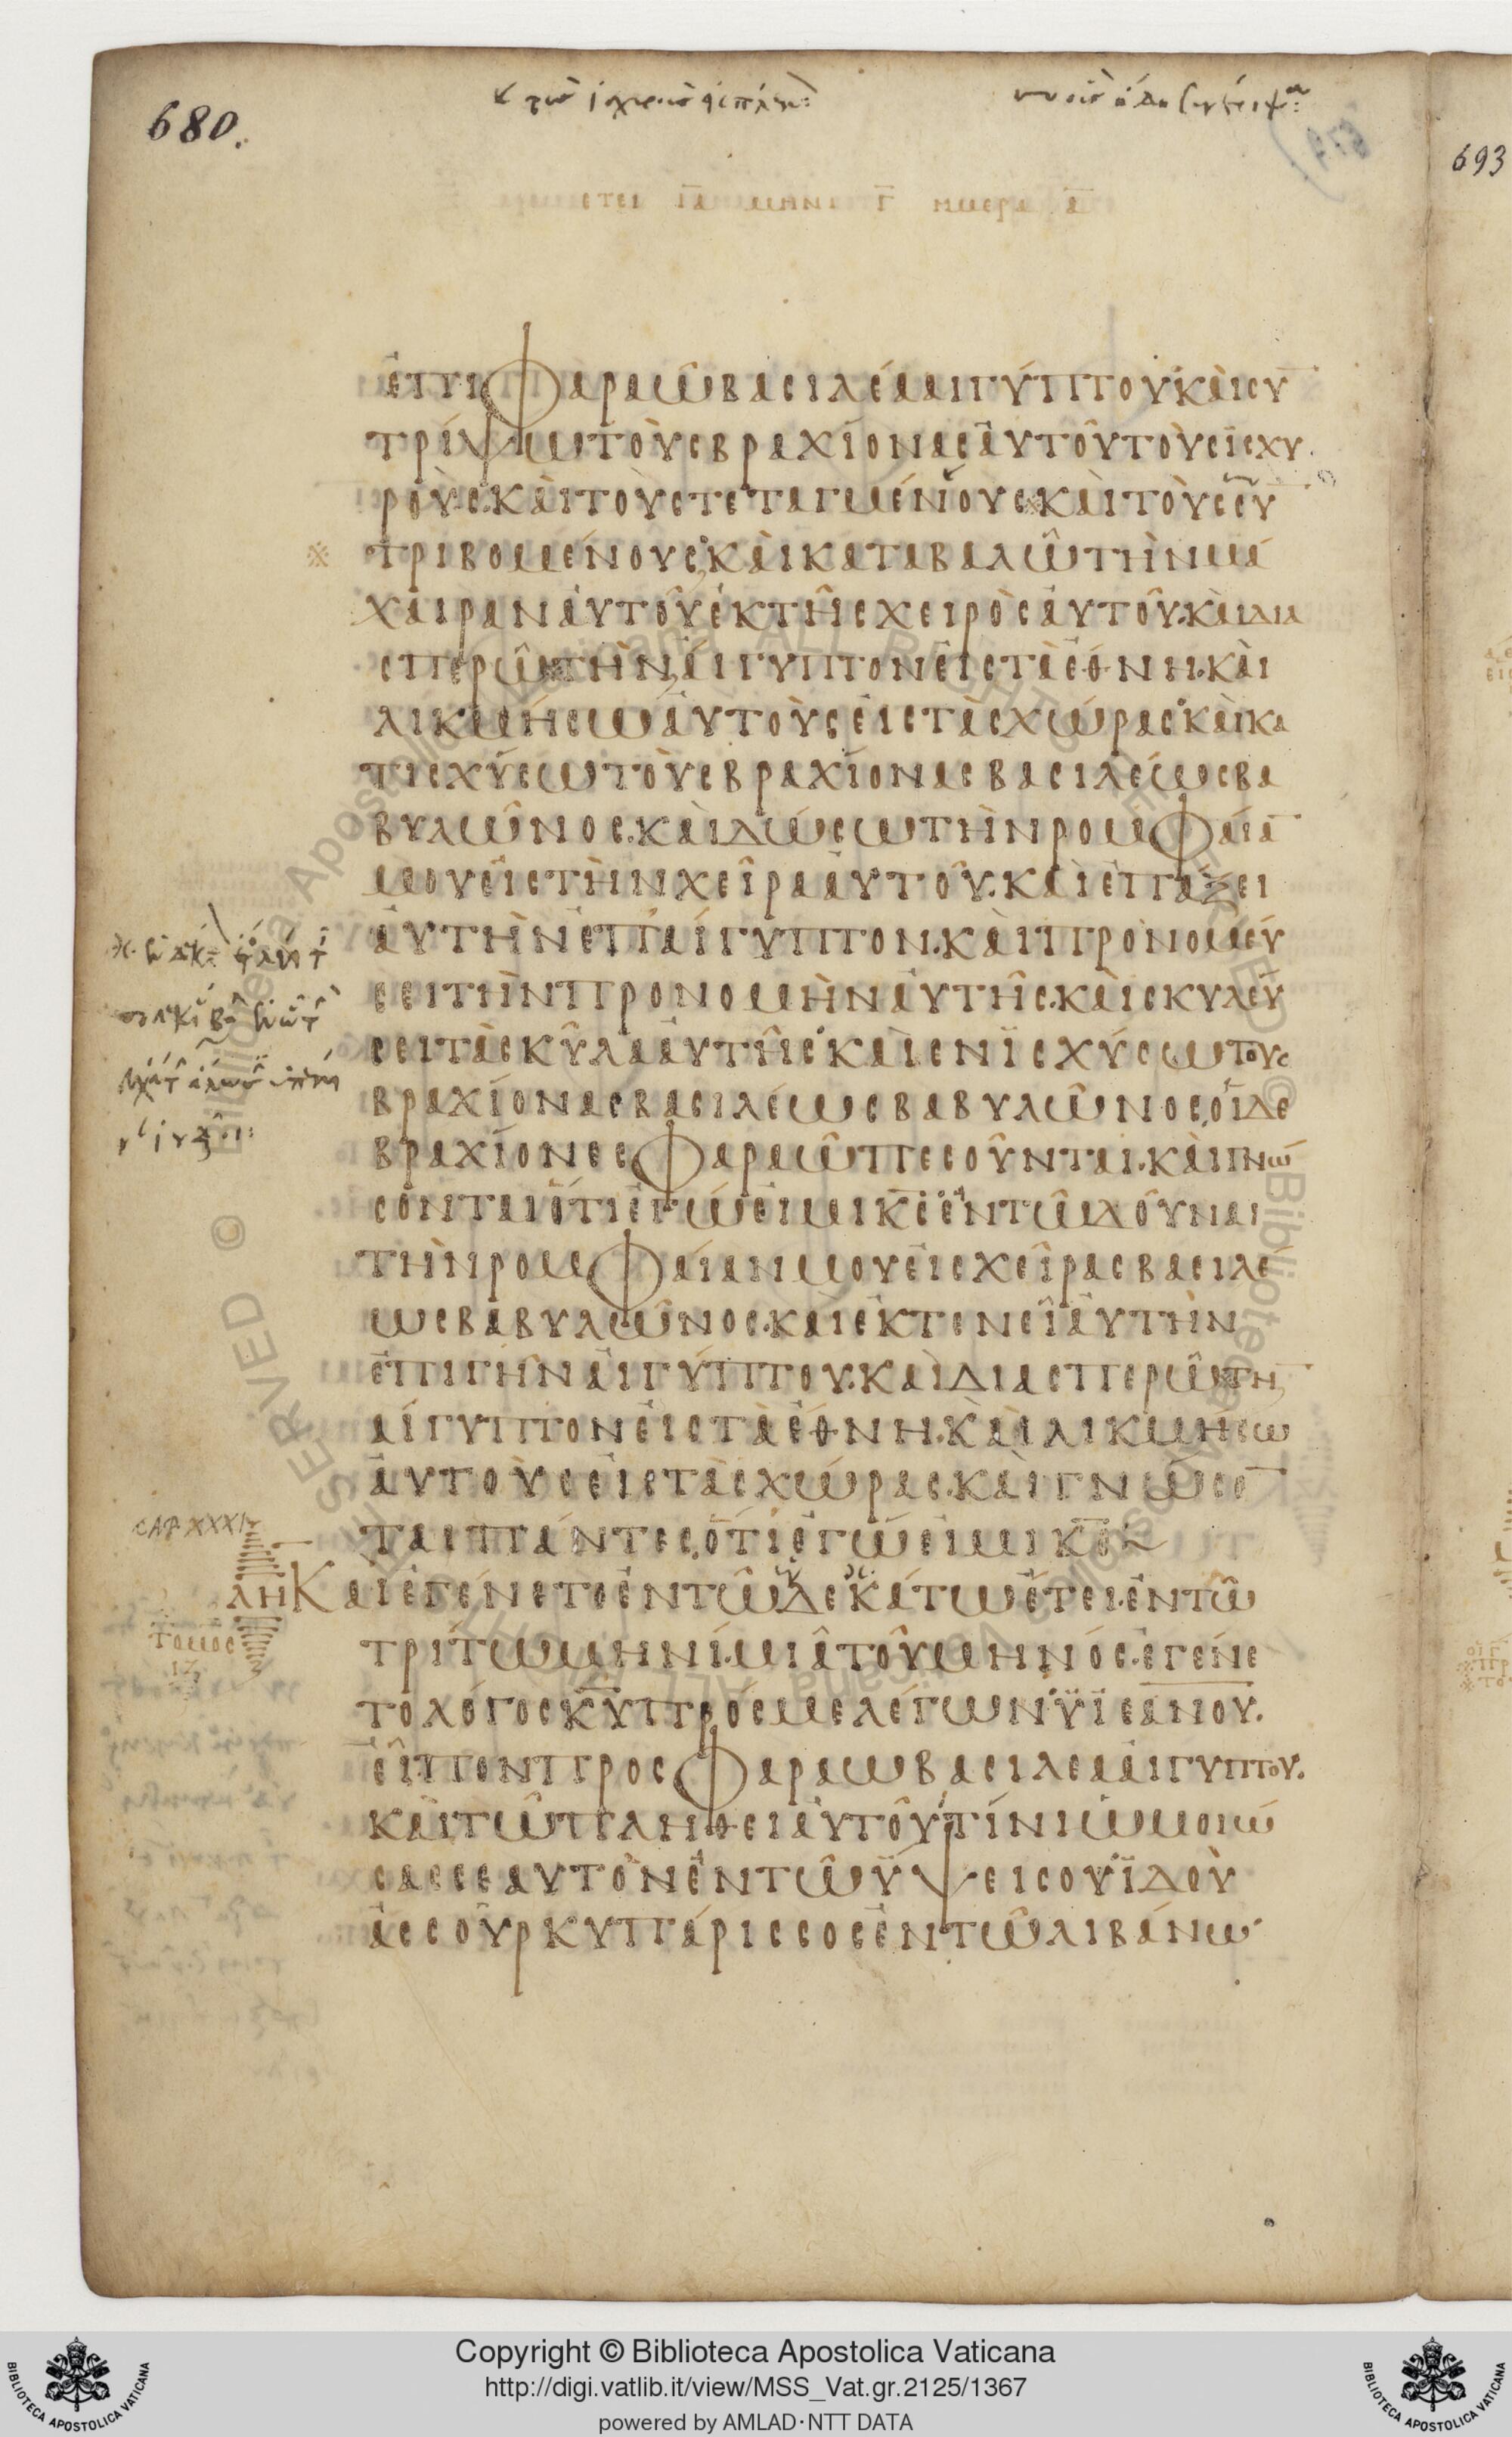 680.
693
ετει ια μηνι γ ημερα α
ἐπὶ Φαραὼ βασιλέα αἰγύπτου· καὶ συ
τρίψω τοὺς βραχίονας αὐτοῦ τοὺς ἰσχυ
ροὺς· καὶ τοὺς τεταγμένους· καὶ τοὺς συ
※ τριβομένους· καὶ καταβαλῶ τὴν μά
χαιραν αὐτοῦ ἐκ τῆς χειρὸς αὐτοῦ· καὶ δια
σπερῶ τὴν αἴγυπτον εἰς τὰ ἔθνη· καὶ
λικμήσω αὐτοὺς εἰς τὰς χώρας· καὶ κα
τισχύσω τοὺς βραχίονας βασιλέως βα
βυλῶνος· καὶ δώσω τὴν ρομφαία
μου εἰς τὴν χεῖρα αὐτοῦ· καὶ ἐπάξει
αὐτὴν ἐπ' αἴγυπτον· καὶ προνομεύ
σει τὴν προνομὴν αὐτῆς· καὶ σκυλεύ
σει τὰ σκῦλα αὐτῆς· καὶ ἐνισχύσω τοὺς
βραχίονας βασιλέως βαβυλῶνος, οἱ δὲ
βραχίονες Φαραὼ πεσοῦνται· καὶ γνώ
σονται ὅτι ἐγώ εἰμι κς ἐν τῶ δοῦναι
τὴν ρομφαίαν μου εἰς χεῖρας βασιλέ
ως βαβυλῶνος· καὶ ἐκτενεῖ αὐτὴν
ἐπὶ γῆν αἰγύπτου· καὶ διασπερῶ τὴ
αἴγυπτον εἰς τὰ ἔθνη· καὶ λικμήσω
αὐτοὺς εἰς τὰς χώρας· καὶ γνώσο
ται πάντες, ὅτι ἐγώ εἰμι κς
CAP. XXXI
λη Καὶ ἐγένετο ἐν τῶ δεκάτω ἔτει· ἐν τῶ
τρίτω μηνί· μιᾶ τοῦ μηνός· ἐγένε
τομος
το λόγος κυ πρός με λέγων· υἱὲ ανου·
εἶπον προς Φαραω βασιλεα αἰγυπτου·
καὶ τῶ πλήθει αὐτοῦ· τίνι ὡμοίω
σας σεαυτὸν ἐν τῶ ὕψει σου· ἰδοὺ
ἀσσοὺρ κυπάρισσος ἐν τῶ λιβάνω·
Copyright © Biblioteca Apostolica Vaticana
http://digi.vatlib.it/view/MSS_Vat.gr.2125/1367
powered by AMLAD·NTT DATA
BIBLIOTECA APOSTOLICA VATICANA
BIBLIOTECA APOSTOLICA VATICANA